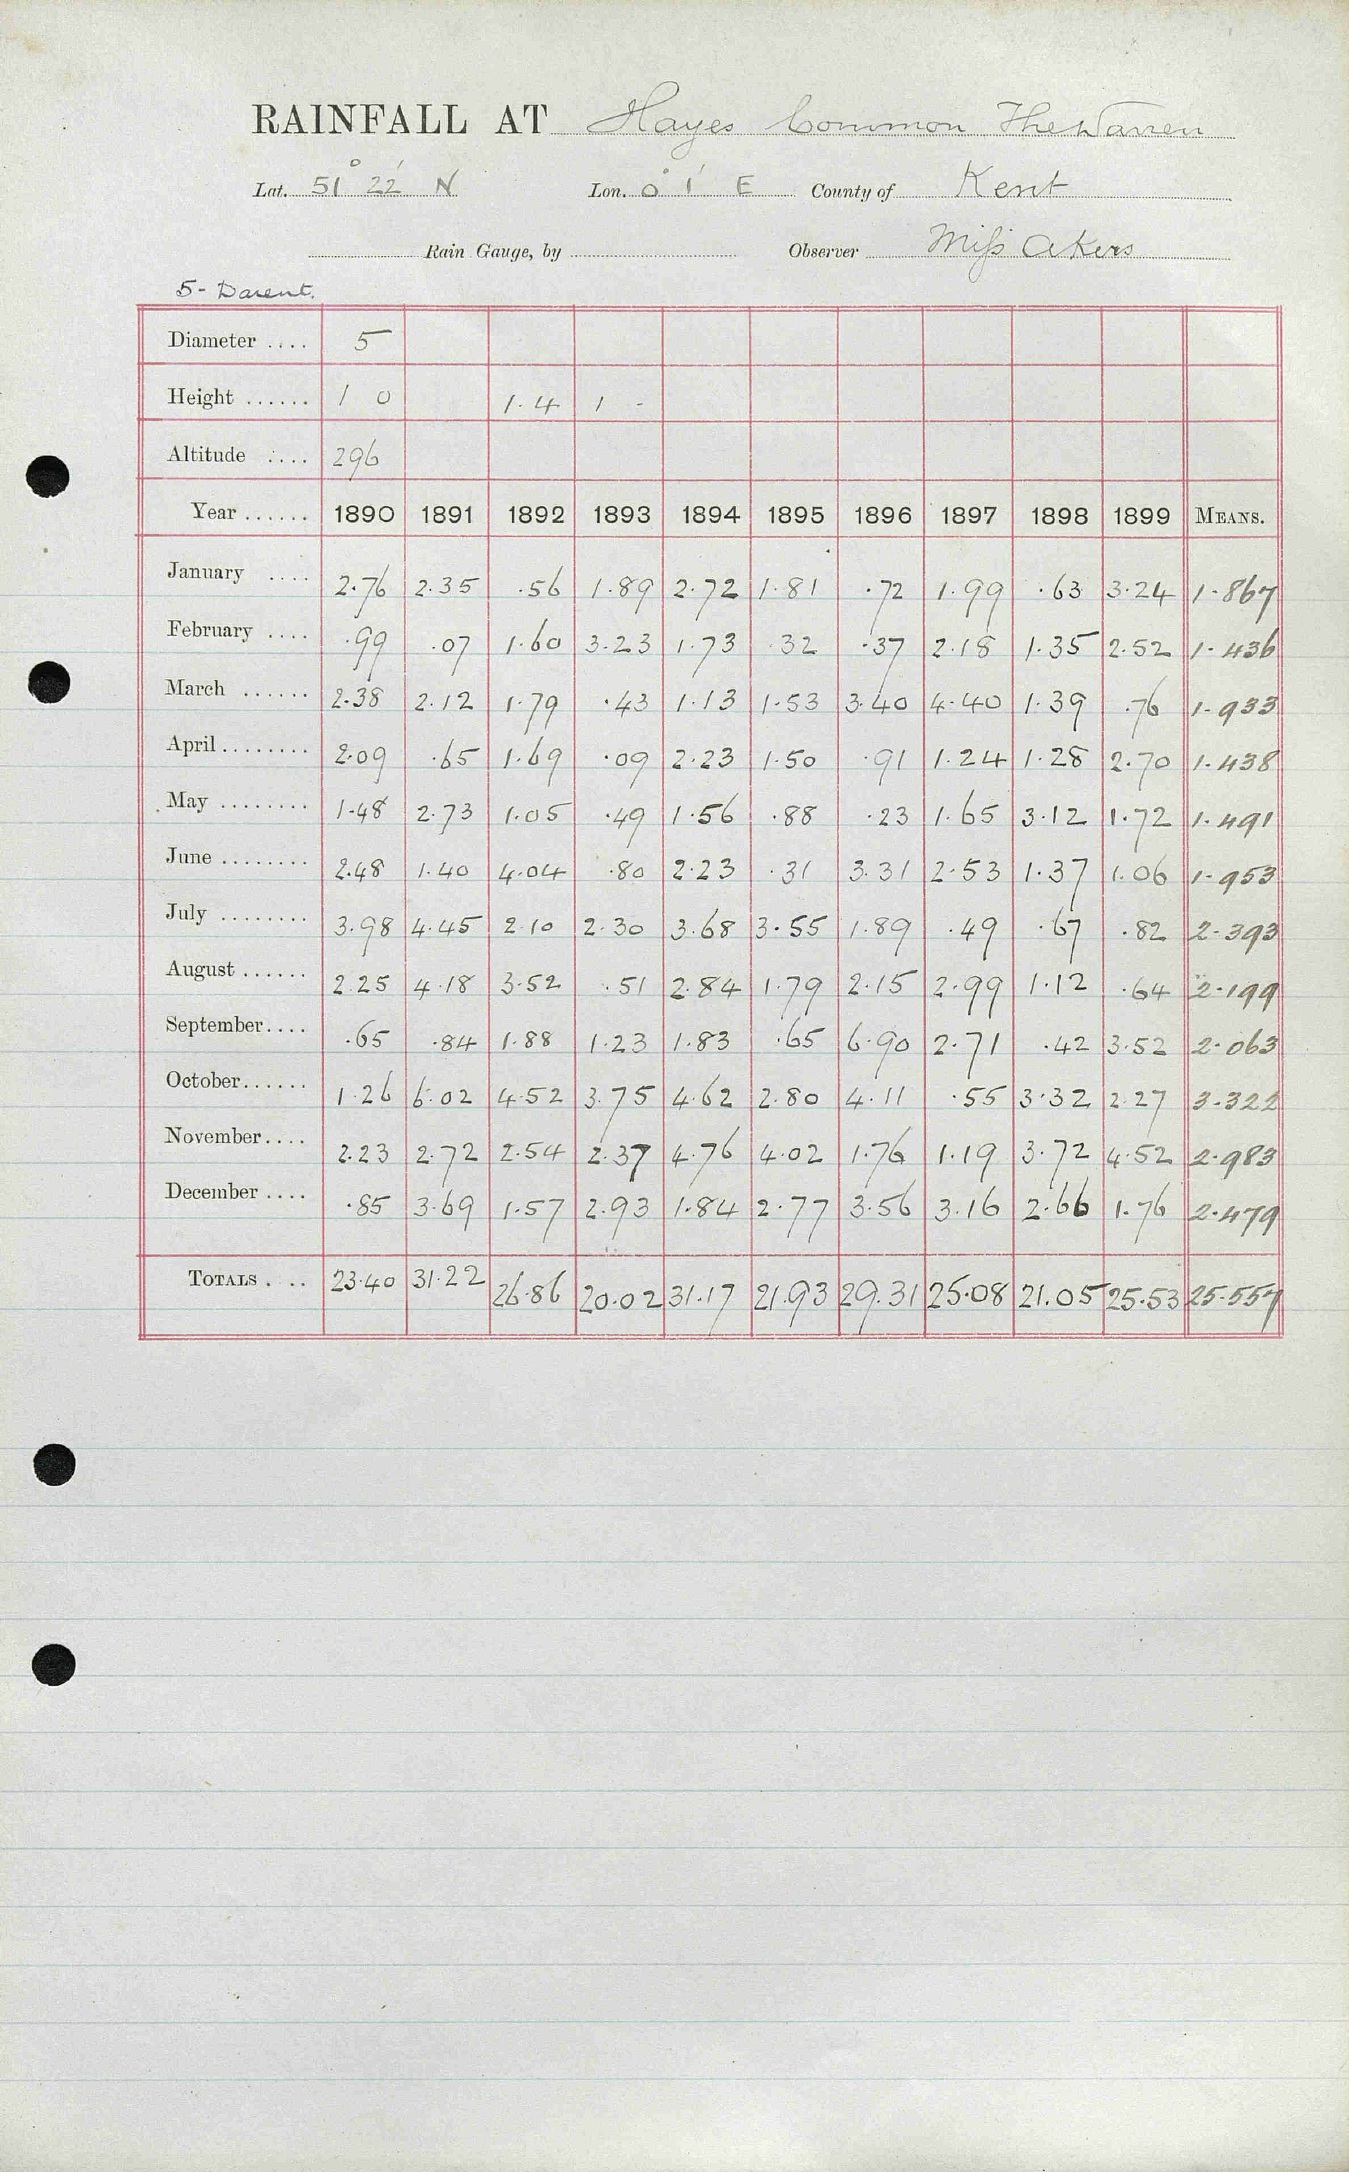 RAINFALL AT Hayes Common The Warren
Lat. 51° 22' N Lon. 0° 1' E County of Kent
Rain Gauge, by Observer Miss Akers
5 - Darent.
Diameter .... 5
Height ...... 1 0 1.4 1 -
Altitude .... 296
Year ...... 1890 1891 1892 1893 1894 1895 1896 1897 1898 1899 MEANS.
January .... 2.76 2.35 .56 1.89 2.72 1.81 .72 1.99 .63 3.24 1.867
February .... .99 .07 1.60 3.23 1.73 .32 .37 2.18 1.35 2.52 1.436
March ...... 2.38 2.12 1.79 .43 1.13 1.53 3.40 4.40 1.39 .76 1.933
April ........ 2.09 .65 1.69 .09 2.23 1.50 .91 1.24 1.28 2.70 1.438
May ........ 1.48 2.73 1.05 .49 1.56 .88 .23 1.65 3.12 1.72 1.491
June ........ 2.48 1.40 4.04 .80 2.23 .31 3.31 2.53 1.37 1.06 1.953
July ........ 3.98 4.45 2.10 2.30 3.68 3.55 1.89 .49 .67 .82 2.393
August ...... 2.25 4.18 3.52 .51 2.84 1.79 2.15 2.99 1.12 .64 2.199
September.... .65 .84 1.88 1.23 1.83 .65 6.90 2.71 .42 3.52 2.063
October...... 1.26 6.02 4.52 3.75 4.62 2.80 4.11 .55 3.32 2.27 3.322
November.... 2.23 2.72 2.54 2.37 4.76 4.02 1.76 1.19 3.72 4.52 2.983
December .... .85 3.69 1.57 2.93 1.84 2.77 3.56 3.16 2.66 1.76 2.479
TOTALS . .. 23.40 31.22 26.86 20.02 31.17 21.93 29.31 25.08 21.05 25.53 25.557